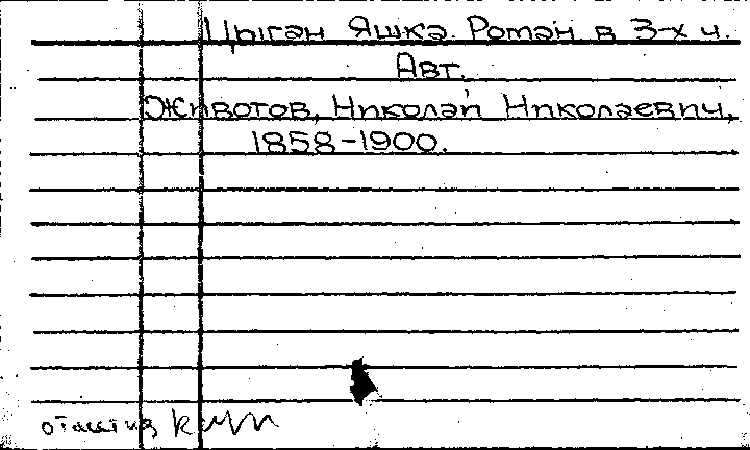 Цыган Яшка. Роман в 3-х ч.
Авт.
Животов, Николай Николаевич,
1858-1900.